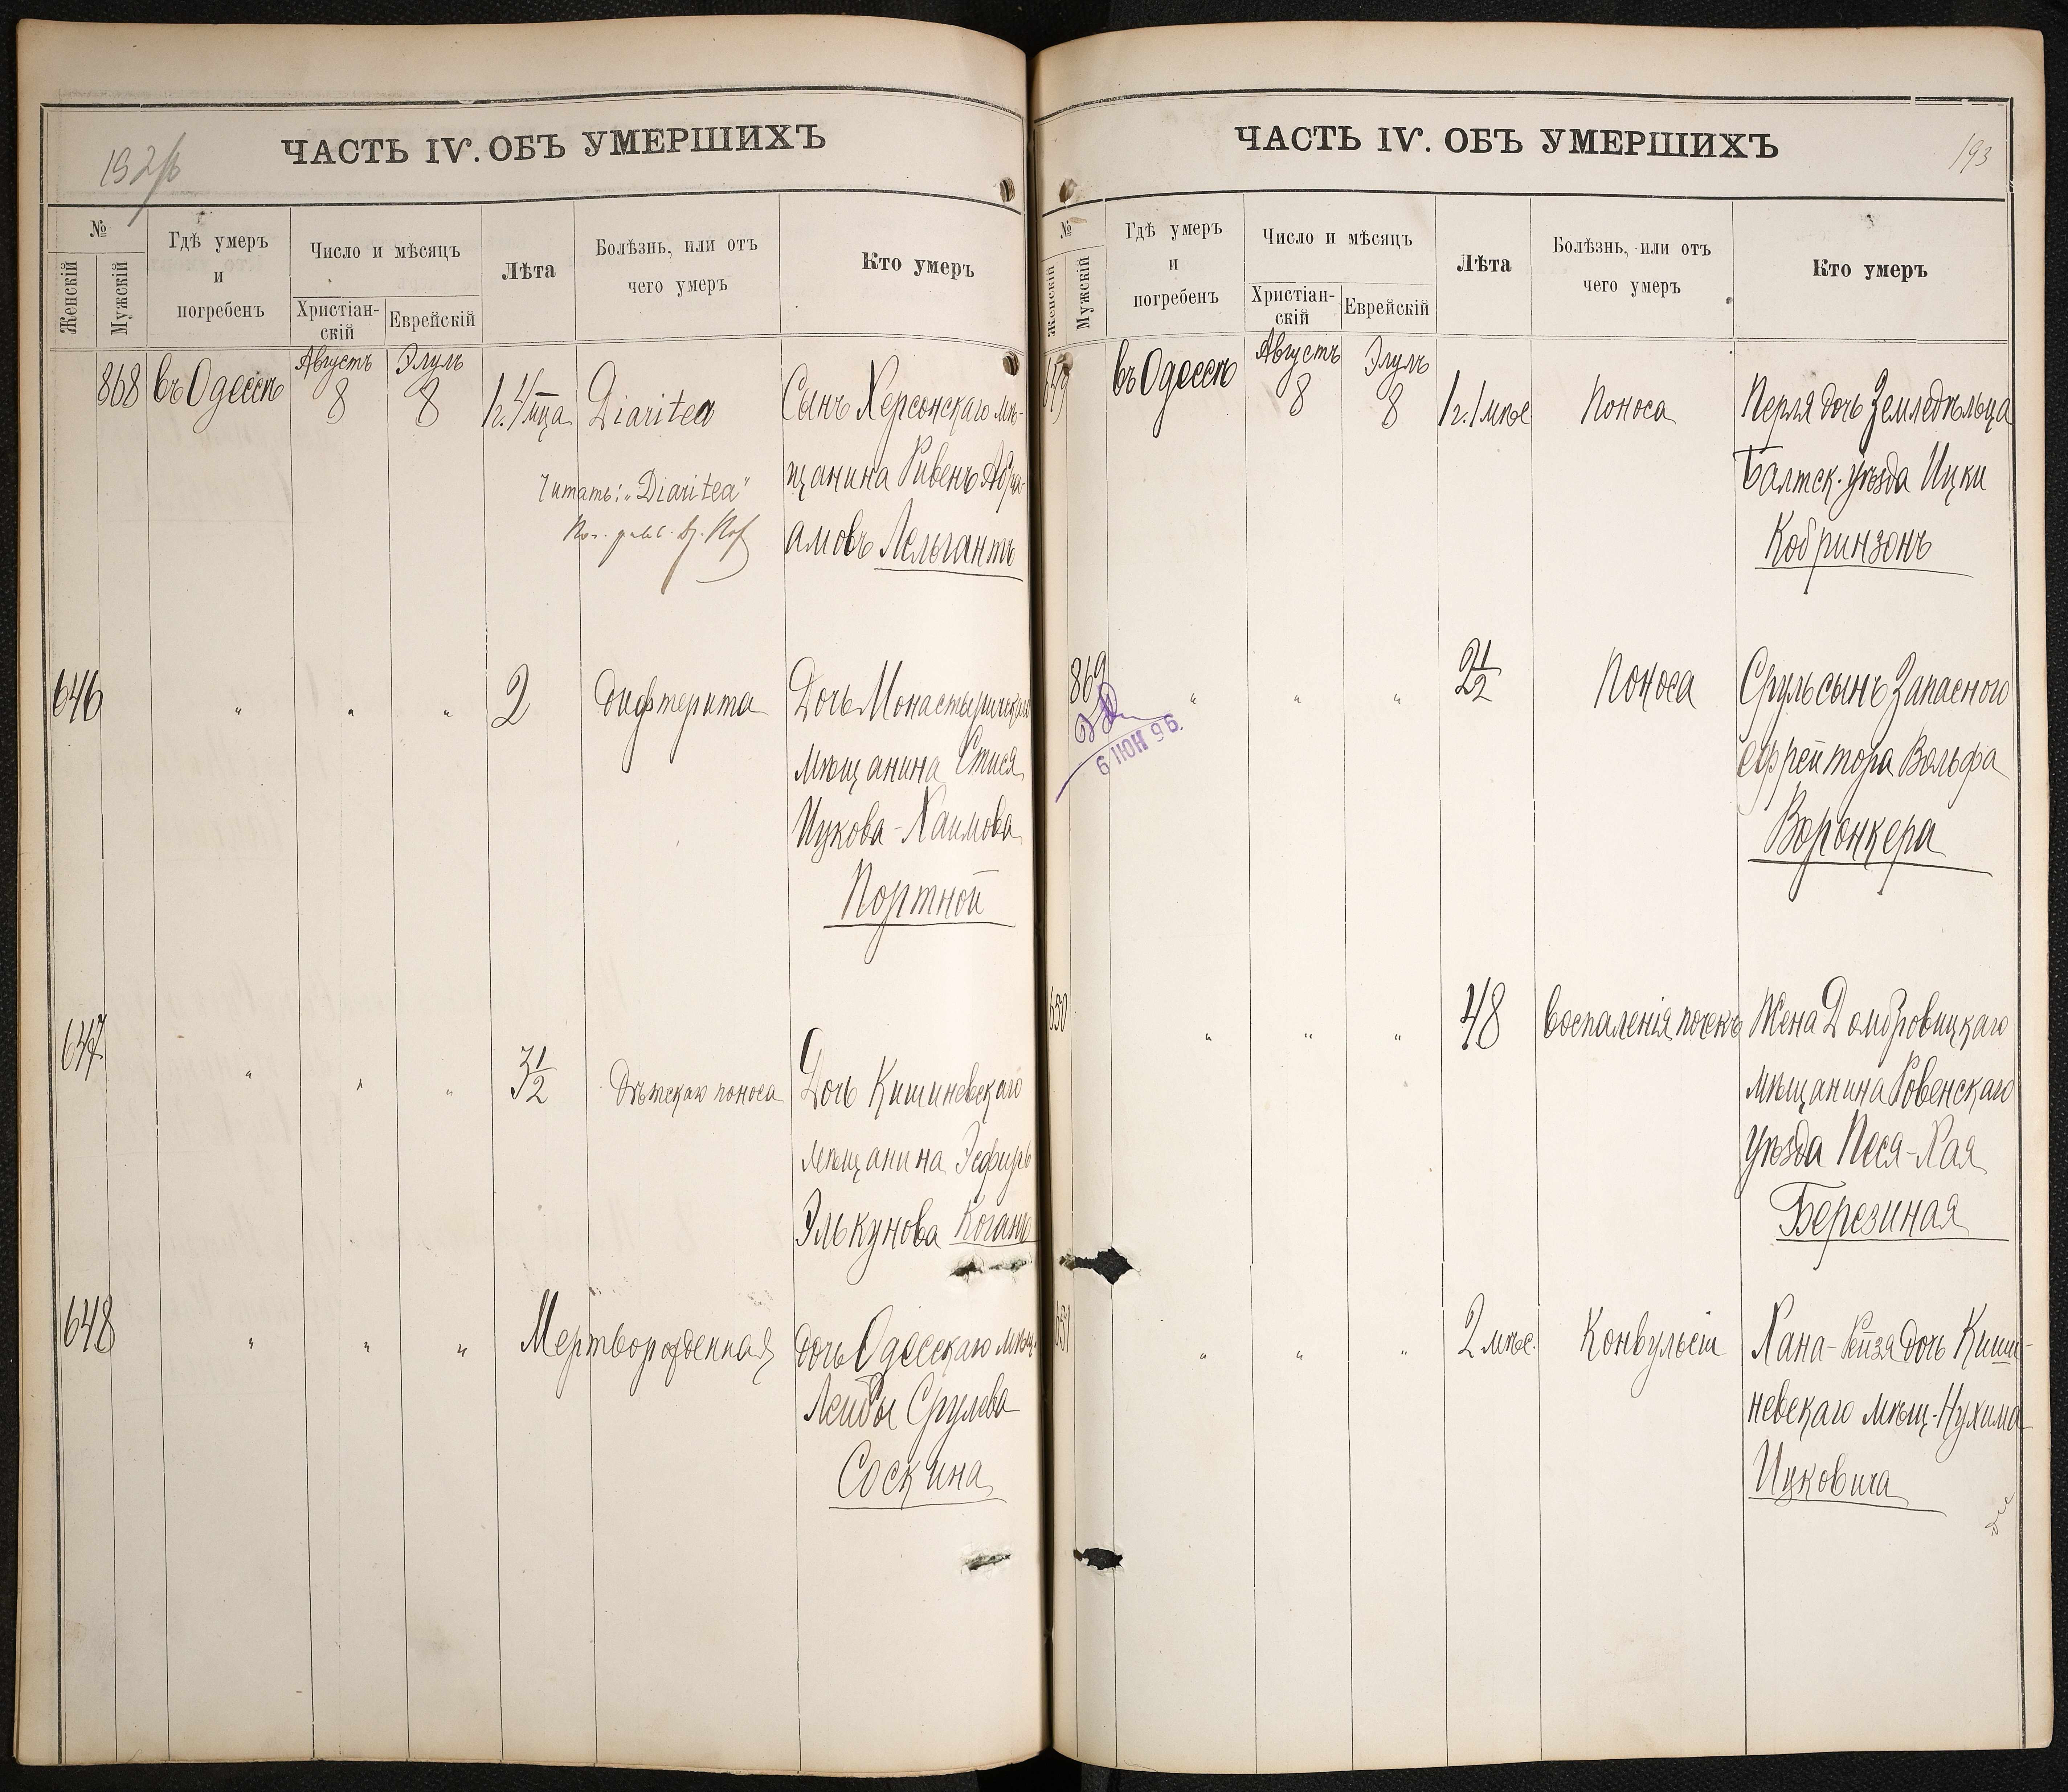 192/б
ЧАСТЬ IV. ОБЪ УМЕРШИХЪ
№
Женскій
Мужскій
Гдѣ умеръ
и
погребенъ
Число и мѣсяцъ
Христіан-
скій
Еврейскій
Лѣта
Болѣзнь, или отъ
чего умеръ
Кто умеръ
868 въ Одессѣ Августъ 8 Элулъ 8 1 г. 4 мца Diaritea Сынъ Херсонскаго мѣ-
щанина Ривенъ Абра-
амовъ Лельгантъ
Читать: „Diaritea"
646 " " " 2 дифтерита Дочь Монастырискаго
мѣщанина Стися
Ицкова-Хаимова
Портной
647 " " " 3 1/2 дѣтскаго поноса Дочь Кишиневскаго
мѣщанина Эсфирь
Элькунова Коганъ
648 " " " Мертворожденная дочь Одесскаго мѣщ.
Лейбы Срулева
Соскина
193
ЧАСТЬ IV. ОБЪ УМЕРШИХЪ
№
Женскій
Мужскій
Гдѣ умеръ
и
погребенъ
Число и мѣсяцъ
Христіан-
скій
Еврейскій
Лѣта
Болѣзнь, или отъ
чего умеръ
Кто умеръ
649 въ Одессѣ Августъ 8 Элулъ 8 1 г. 1 мѣс Поноса Перля дочь Земледѣльца
Балтск. уѣзда Ицки
Кобринзонъ
869 " " " 2 1/2 Поноса Сруль сынъ Запасного
ефрейтора Вольфа
Воронкера
6 ІЮН 96.
650 " " " 48 воспаленія почекъ Жена Домбровицкаго
мѣщанина Ровенскаго
уѣзда Песя-Хая
Березиная
651 " " " 2 мѣс. Конвульсіи Хана-Рейзя дочь Киши-
невскаго мѣщ. Нухима
Ицковича